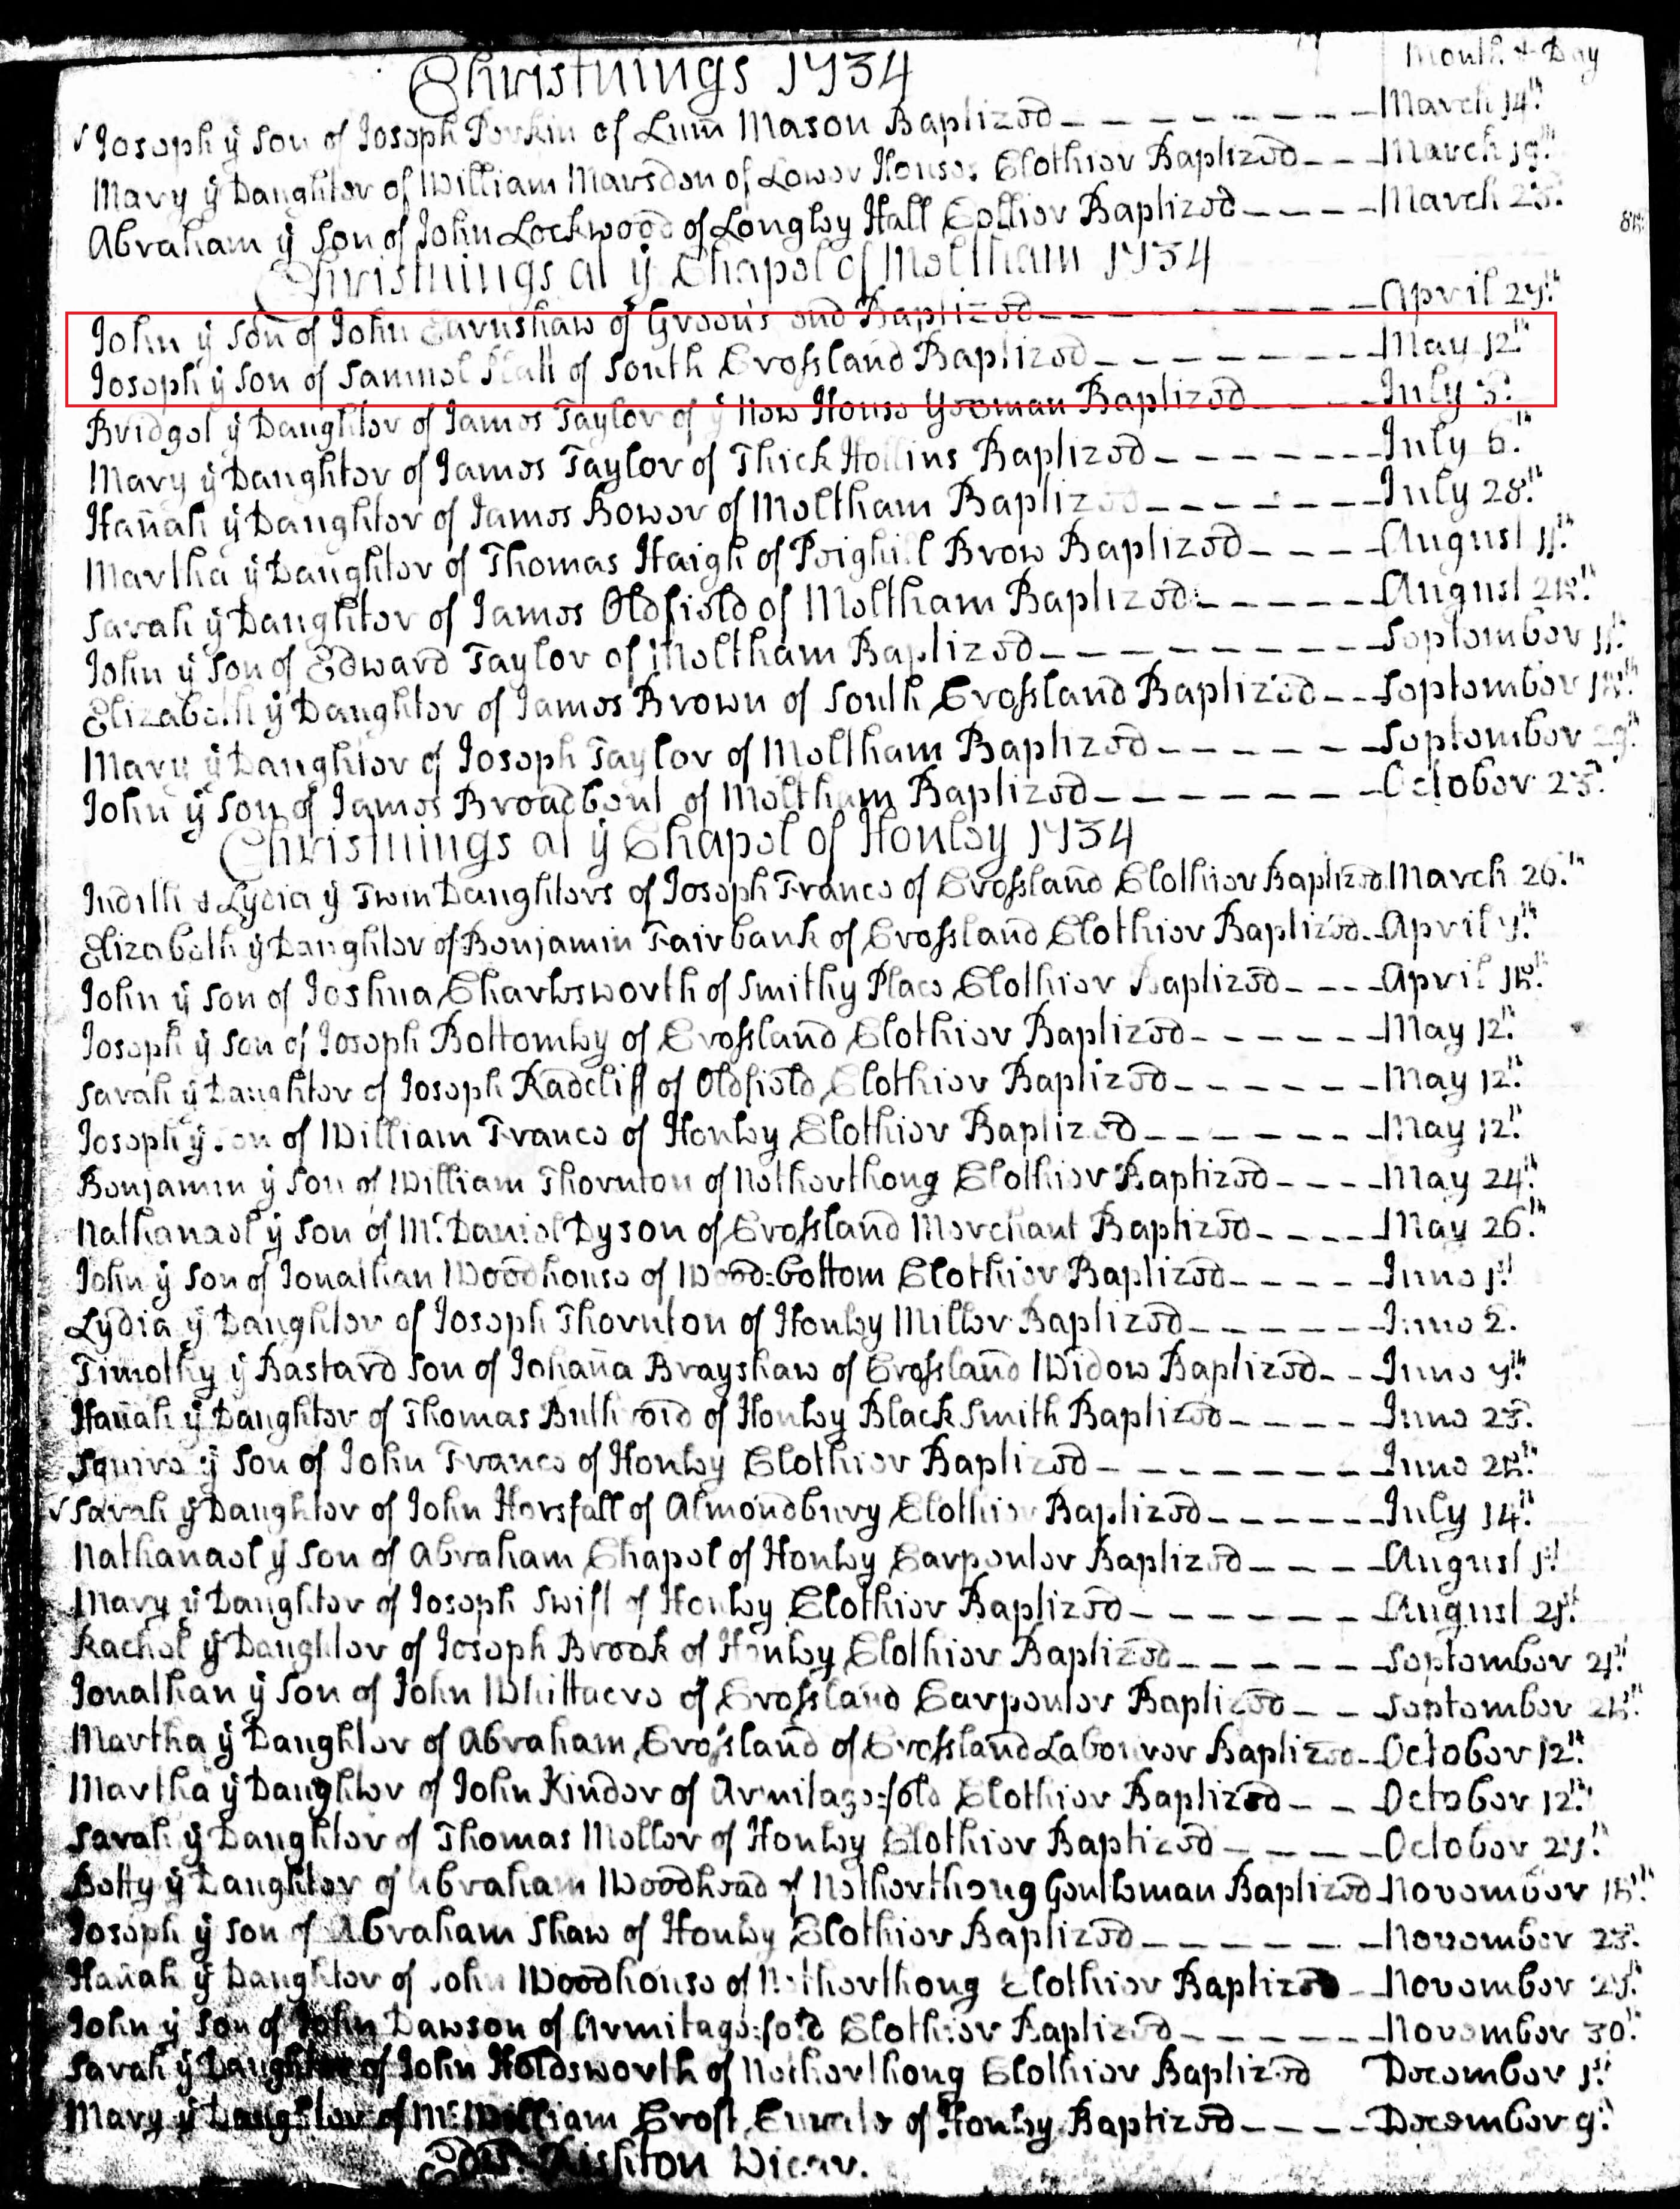 Christnings 1734
Month & Day
Joseph ÿ Son of Joseph Perkin of Lum Mason Baptized – – – – – – – – March 14th.
Mary ÿ Daughter of William Marsden of Lower House: Clothier Baptized – – – March 19th.
Abraham ÿ Son of John Lockwood of Longley Hall Collier Baptized – – – – March 25.
Christnings at ÿ Chapel of Meltham 1734
John ÿ Son of John Earnshaw of Green's end Baptized – – – – – – – – April 27th.
Joseph ÿ Son of Samuel Hall of South Crosland Baptized – – – – – – – May 12th.
Bridget ÿ Daughter of James Taylor of ÿ New House Yeoman Baptized – – – – July 5.
Mary ÿ Daughter of James Taylor of Thick Hollins Baptized – – – – – – – July 6th.
Hañah ÿ Daughter of James Bower of Meltham Baptized – – – – – – – July 28th.
Martha ÿ Daughter of Thomas Haigh of Brow Baptized – – – – August 11th.
Sarah ÿ Daughter of James Oldfield of Meltham Baptized: – – – – – August
John ÿ Son of Edward Taylor of Meltham Baptized – – – – – – – – – September
Elizabeth ÿ Daughter of James Brown of South Crosland Baptized – – September
Mary ÿ Daughter of Joseph Taylor of Meltham Baptized – – – – – – September 29th.
John ÿ Son of James Broadbent of Meltham Baptized – – – – – – – October 25.
Christnings at ÿ Chapel of Honley 1734
Judith & Lydia ÿ Twin Daughters of Joseph France of Crosland Clothier Baptized March 26th.
Elizabeth ÿ Daughter of Benjamin Fairbank of Crosland Clothier Baptized. April 7th.
John ÿ Son of Joshua Charlesworth of Smithy Place Clothier Baptized – – – April
Joseph ÿ Son of Joseph Bottomley of Crosland Clothier Baptized – – – – – May 12th.
Sarah ÿ Daughter of Joseph Radcliff of Oldfield Clothier Baptized – – – – – May 12th.
Joseph ÿ Son of William France of Honley Clothier Baptized – – – – – – – May 12th.
Benjamin ÿ Son of William Thornton of Netherthong Clothier Baptized – – – – May 24th.
Nathanael ÿ Son of Mr. Daniel Dyson of Crosland Merchant Baptized – – – – – May 26th.
John ÿ Son of Jonathan Woodhouse of Wood:bottom Clothier Baptized – – – – June 1st
Lydia ÿ Daughter of Joseph Thornton of Honley Miller Baptized – – – – – – June 2.
Timothy ÿ Bastard Son of Johaña Brayshaw of Crosland Widow Baptized – – June 9th
Hañah ÿ Daughter of Thomas of Honley Black Smith Baptized – – – – June 23.
Squire ÿ Son of John France of Honley Clothier Baptized – – – – – – – June
Sarah ÿ Daughter of John Horsfall of Almondbury Clothier Baptized – – – – – – July 14th
Nathanael ÿ Son of Abraham Chapel of Honley Carpenter Baptized – – – – August 1st
Mary ÿ Daughter of Joseph Swift of Honley Clothier Baptized – – – – – – August 21st.
Rachel ÿ Daughter of Joseph Brook of Honley Clothier Baptized – – – – – – September 21st.
Jonathan ÿ Son of John Whittacre of Crosland Carpenter Baptized – – September
Martha ÿ Daughter of Abraham Crosland of Crosland Labourer Baptized – October 12th.
Martha ÿ Daughter of John Kinder of Armitage:fold Clothier Baptized – – October 12th.
Sarah ÿ Daughter of Thomas Mellor of Honley Clothier Baptized – – – – October 27th
Betty ÿ Daughter of Abraham Woodhead of Netherthong Gentleman Baptized November
Joseph ÿ Son of Abraham Shaw of Honley Clothier Baptized – – – – – – – November 23.
Hañah ÿ Daughter of John Woodhouse of Netherthong Clothier Baptized – November
John ÿ Son of John Dawson of Armitage:fold Clothier Baptized – – – – – – November 30th.
Sarah ÿ Daughter of John Holdsworth of Netherthong Clothier Baptized December 1st
Mary ÿ Daughter of Mr. William Croft Curate of Honley Baptized – – – – December 9th
Edw. Rishton Vicar.